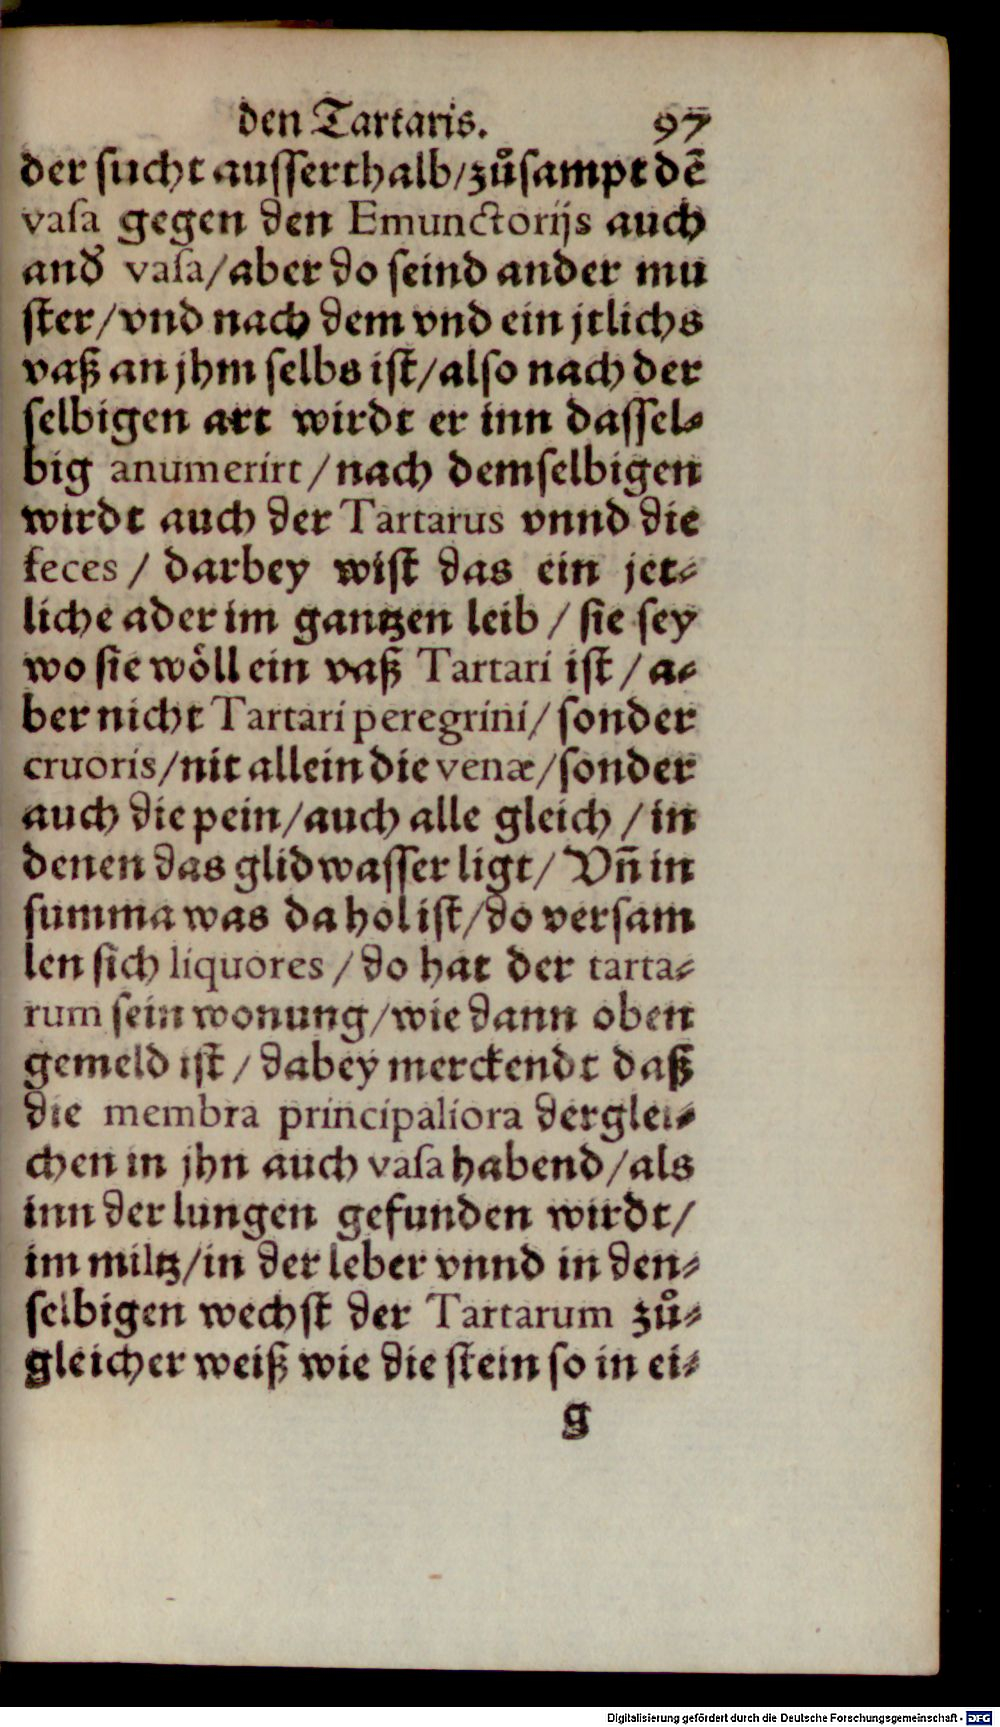 den Tartaris. 97
der sucht ausserthalb/zůsampt dē
vasa gegen den Emunctorijs auch
and̕ vasa/aber do seind ander mu
ster/vnd nach dem vnd ein jtlichs
vaß an jhm selbs ist/also nach der
selbigen art wirdt er inn dassel⸗
big anumerirt/nach demselbigen
wirdt auch der Tartarus vnnd die
feces/ darbey wist das ein jet⸗
liche ader im gantzen leib/ sie sey
wo sie wöll ein vaß Tartari ist/a⸗
ber nicht Tartari peregrini/sonder
cruoris/nit allein die venæ/sonder
auch die pein/auch alle gleich/in
denen das glidwasser ligt/ Vñ in
summa was da hol ist/do versam
len sich liquores/do hat der tarta⸗
rum sein wonung/wie dann oben
gemeld ist/dabey merckendt daß
die membra principaliora derglei⸗
chen in jhn auch vasa habend/als
inn der lungen gefunden wirdt/
im miltz/in der leber vnnd in den⸗
selbigen wechst der Tartarum zů⸗
gleicher weiß wie die stein so in ei⸗
g
Digitalisierung gefördert durch die Deutsche Forschungsgemeinschaft - DFG